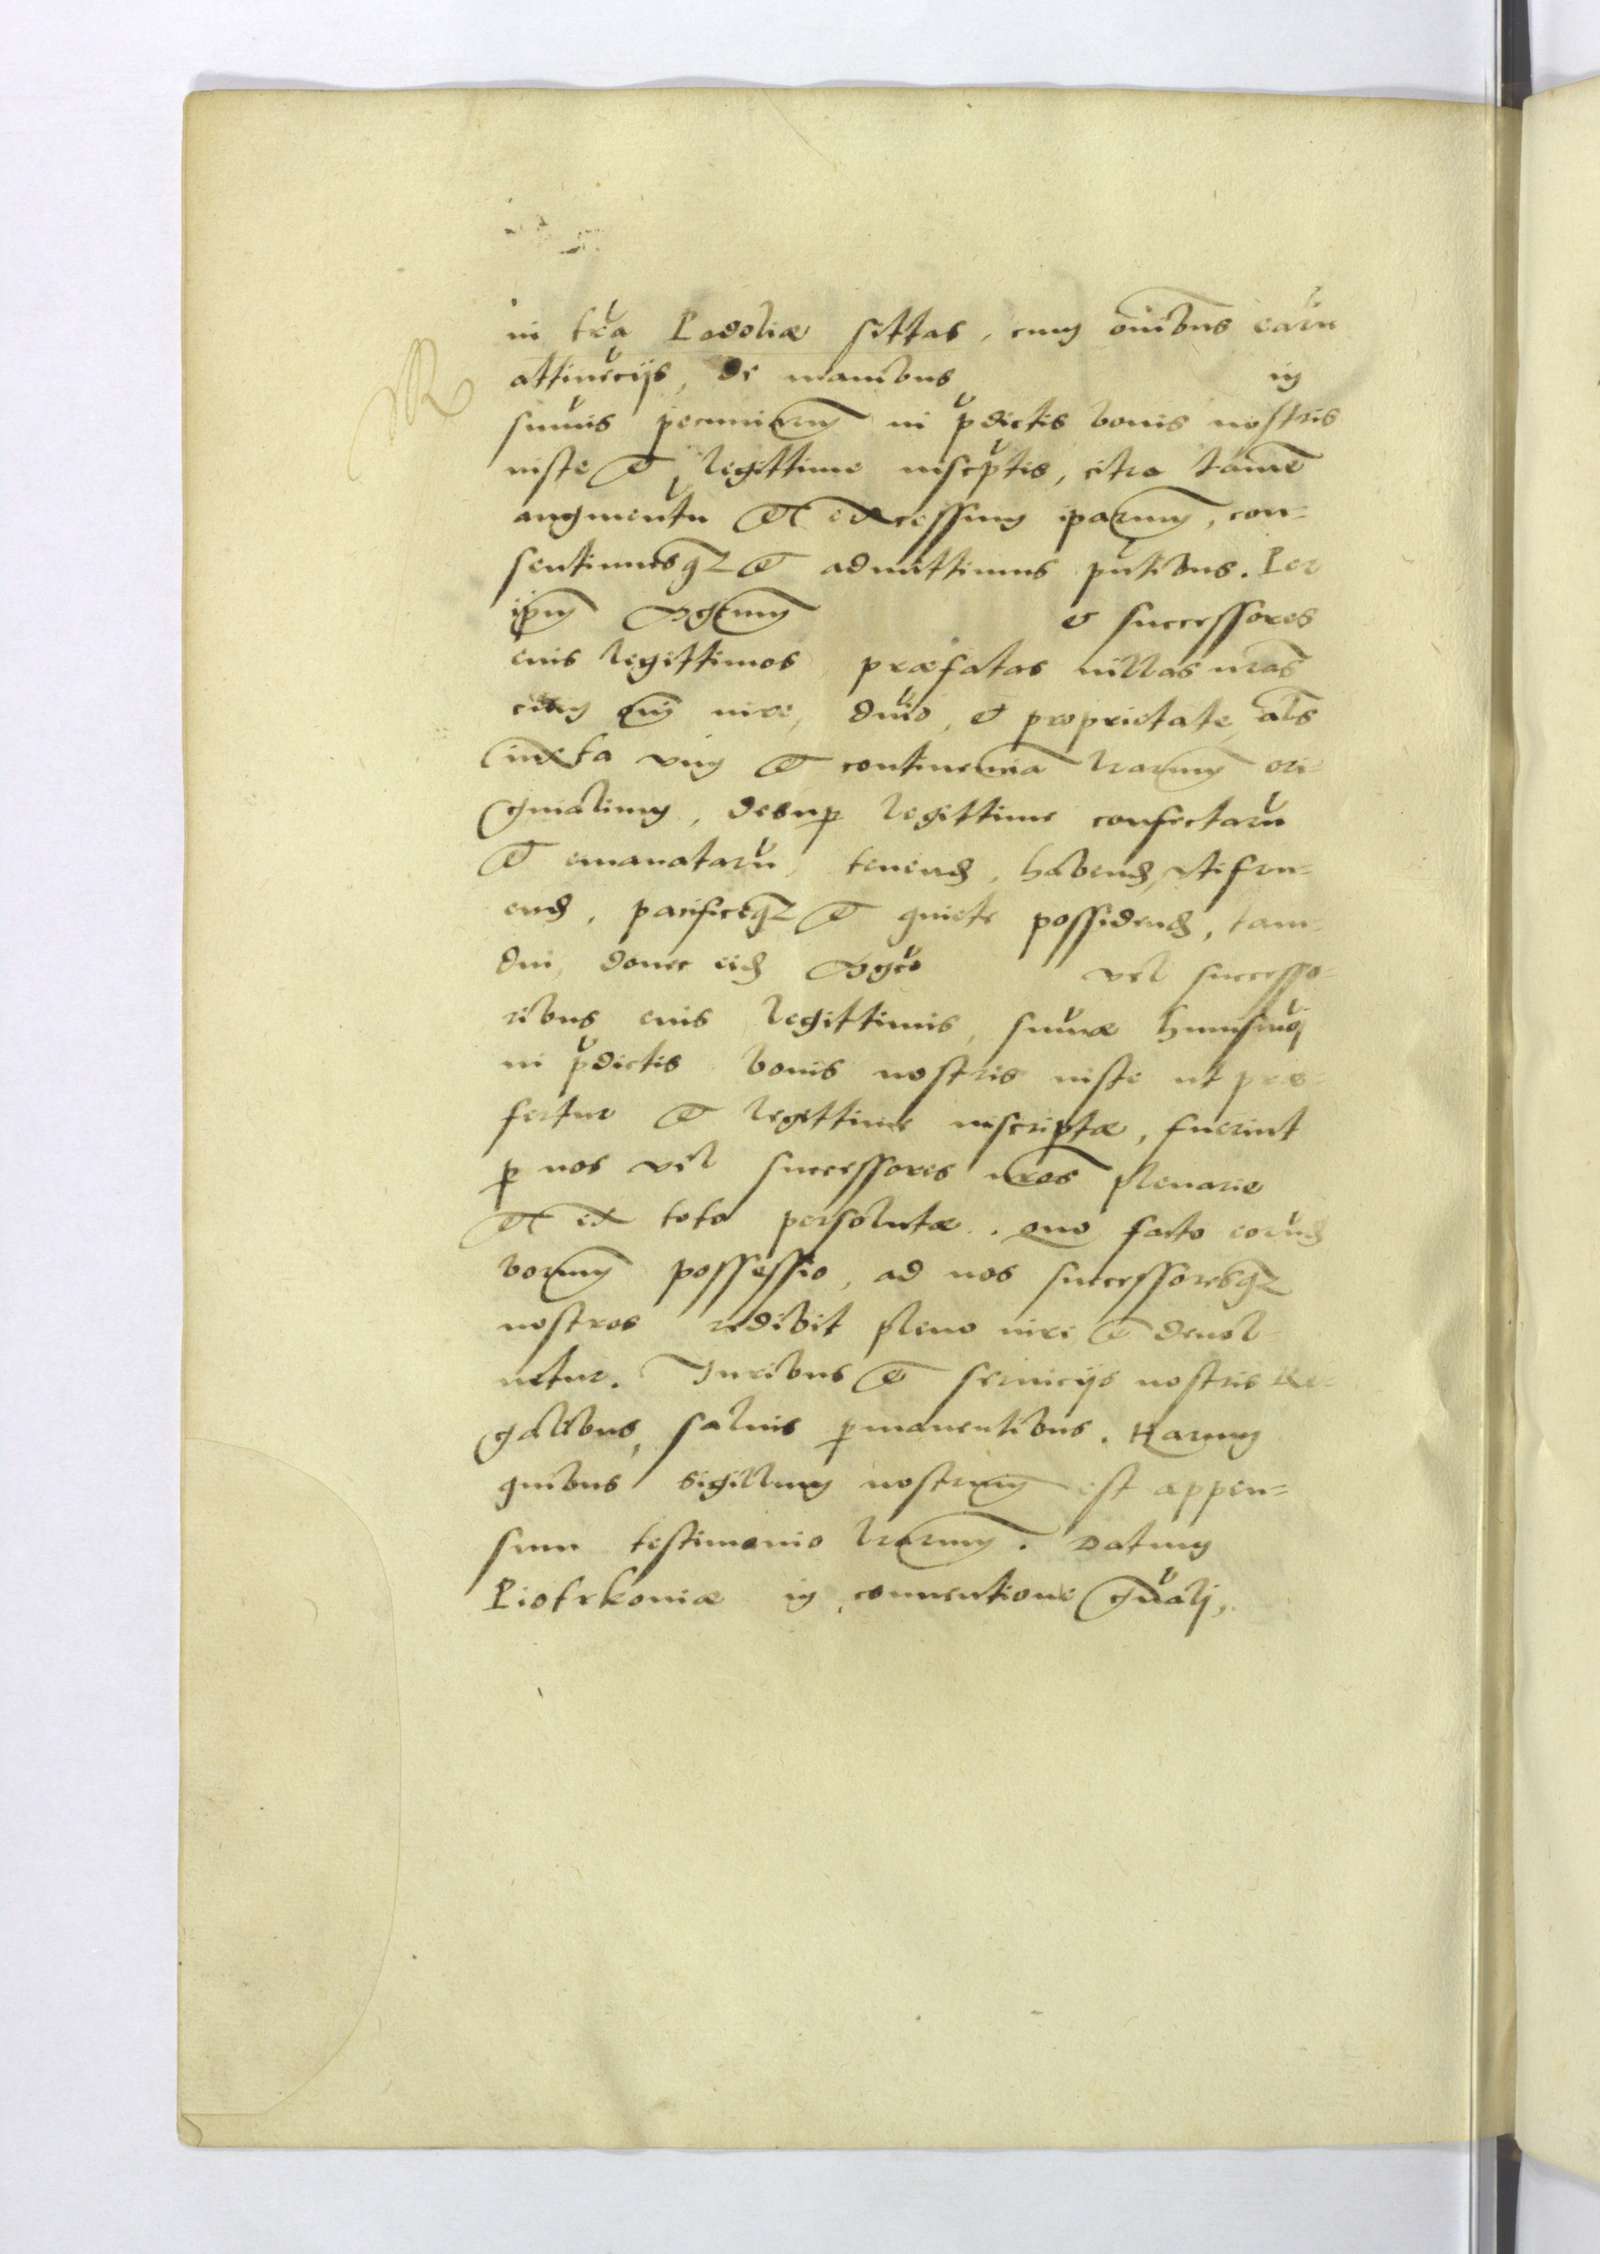 in tra Podoliæ sittas, cum omibus earu
attinẽcijs, de manibus in
sumis pecuniarum in pdictis bonis nostris
iuste et legittime inscptis, citra tamẽ
augmentu et excessum iparum, con=
sentimusq3 et admittimus pntibus. Per
ipm Ggenm & successores
eius legittimos præfatas villas nras
cum omi iure, dnio, & proprietate, als
iuxta vim et continencia lrarum ori=
ginalium, desup legittime confectaru
et emanataru, tenend, habend, vtifru=
end, pacificeq3 et quiete possidend, tam=
diu, donec eid Ggeo vel successo=
ribus eius legittimis, sumæ huiusmoi
in pdictis bonis nostris iuste ut præ=
fertur et legittime inscriptæ, fuerint
p nos vel successores nros plenarie
et ex toto persolutæ. quo facto eorund
bonorum possessio, ad nos successoresq3
nostros redibit pleno iure et deuol=
uetur. Iuribus et seruicijs nostris Re=
galibus, saluis pmanentibus. Harum
quibus sigillum nostrum est appen=
sum testimonio lrarum. Datum
Piotrkouiæ in conuentione gnali,